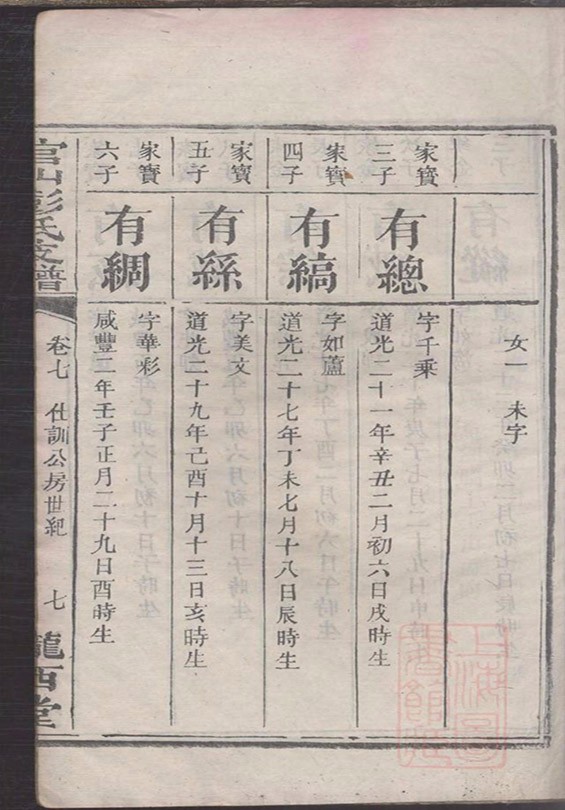 女一 未字
家寶
三子
有總
字千乘
道光二十一年辛丑二月初六日戌時生
家寶
四子
有縞
字如蘆
道光二十七年丁未七月十八日辰時生
家寶
五子
有繇
字美文
道光二十九年己酉十月十三日亥時生
家寶
六子
有綢
字華彩
咸豐二年壬子正月二十九日酉時生
官山彭氏支譜
卷七 仕訓公房世紀
七
隴西堂
上海圖書館藏